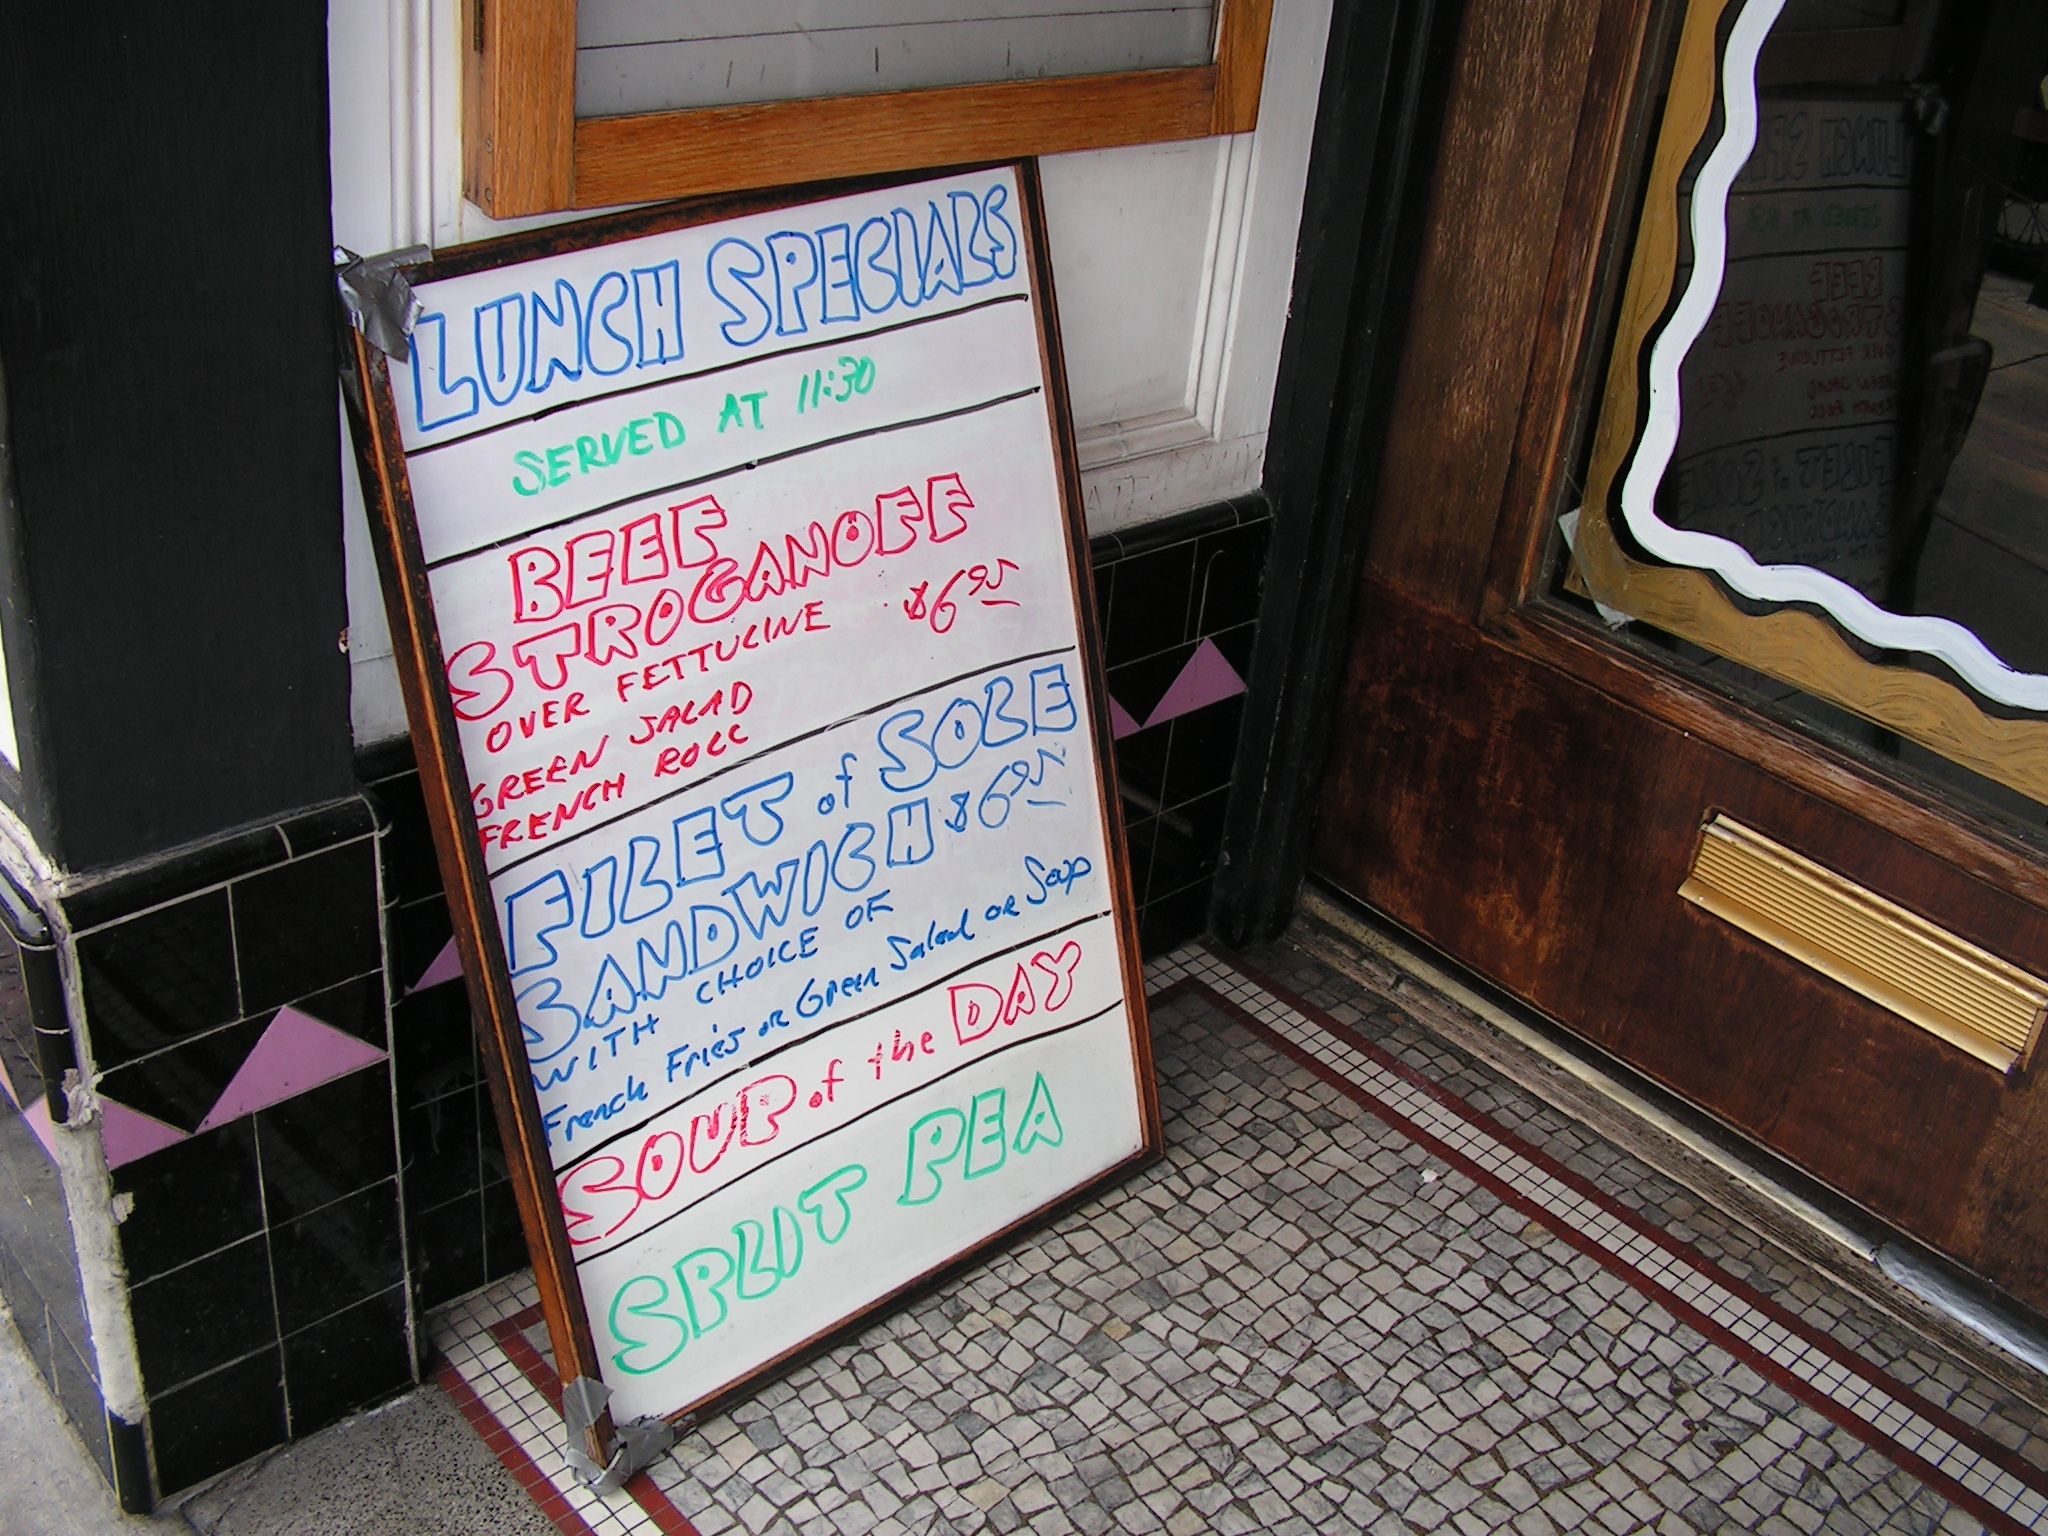 LUNCH SPECIALS
SERVED AT 11:30
BEEF
STROGANOFF
OVER FETTUCINE $6.95
GREEN SALAD
FRENCH ROLL
FILET of SOLE
SANDWICH $6.95
WITH CHOICE OF
French Fries or Green Salad or Soup
SOUP of the DAY
SPLIT PEA